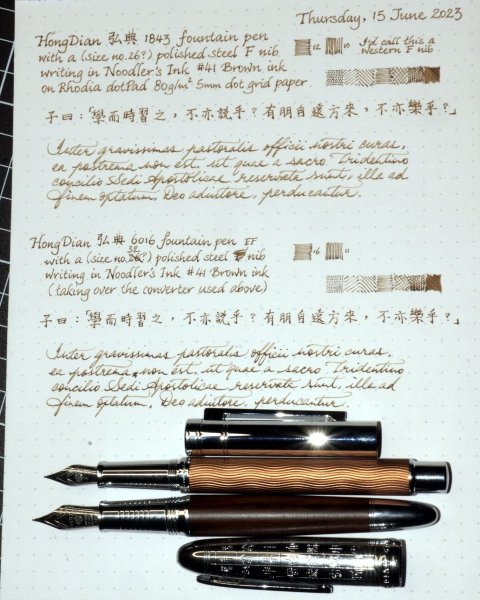 Thursday, 15 June 2023
HongDian 弘典 1843 fountain pen
with a (size no. 26?) polished steel F nib
writing in Noodler's Ink #41 Brown ink
on Rhodia dotPad 80g/m² 5mm dot grid paper
12 10 I'd call this a
Western F nib
子曰:「學而時習之,不亦說乎?有朋自遠方來,不亦樂乎?」
Inter gravissimas pastoralis officii nostri curas,
ea postrema non est, ut quae a sacro Tridentino
concilio Sedi Apostolicae reservata sunt, illa ad
finem optatum, Deo adiutore, perducantur.
HongDian 弘典 6016 fountain pen EF
with a (size no. ?) polished steel nib
writing in Noodler's Ink #41 Brown ink
(taking over the converter used above)
16 11
子曰:「學而時習之,不亦說乎?有朋自遠方來,不亦樂乎?」
Inter gravissimas pastoralis officii nostri curas,
ea postrema non est, ut quae a sacro Tridentino
concilio Sedi Apostolicae reservata sunt, illa ad
finem optatum, Deo adiutore, perducantur.